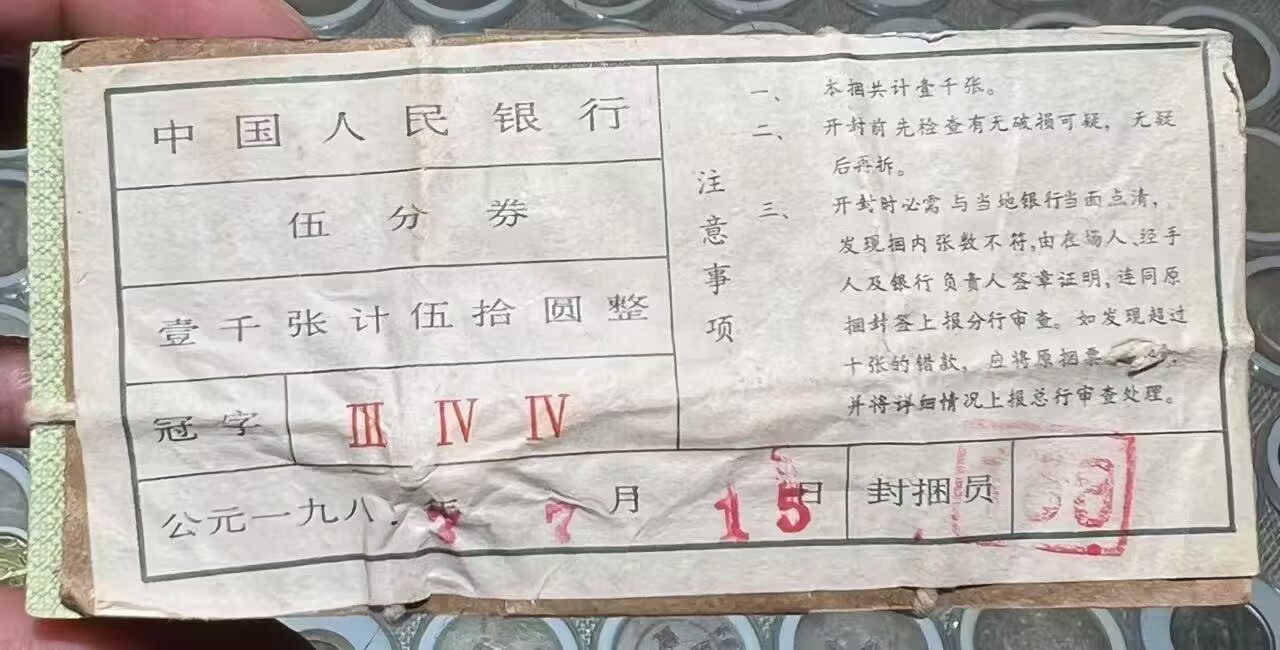 中国人民银行
伍分券
壹千张计伍拾圆整
冠字 III IV IV
公元一九八. 年 7月15日
封捆员
注意事项
一、 本捆共计壹千张。
二、 开封前先检查有无破损可疑，无疑
后再拆。
三、 开封时必需与当地银行当面点清，
发现捆内张数不符，由在场人、经手
人及银行负责人签章证明，连同原
捆封签上报分行审查。如发现超过
十张的错款，应将原捆票
并将详细情况上报总行审查处理。